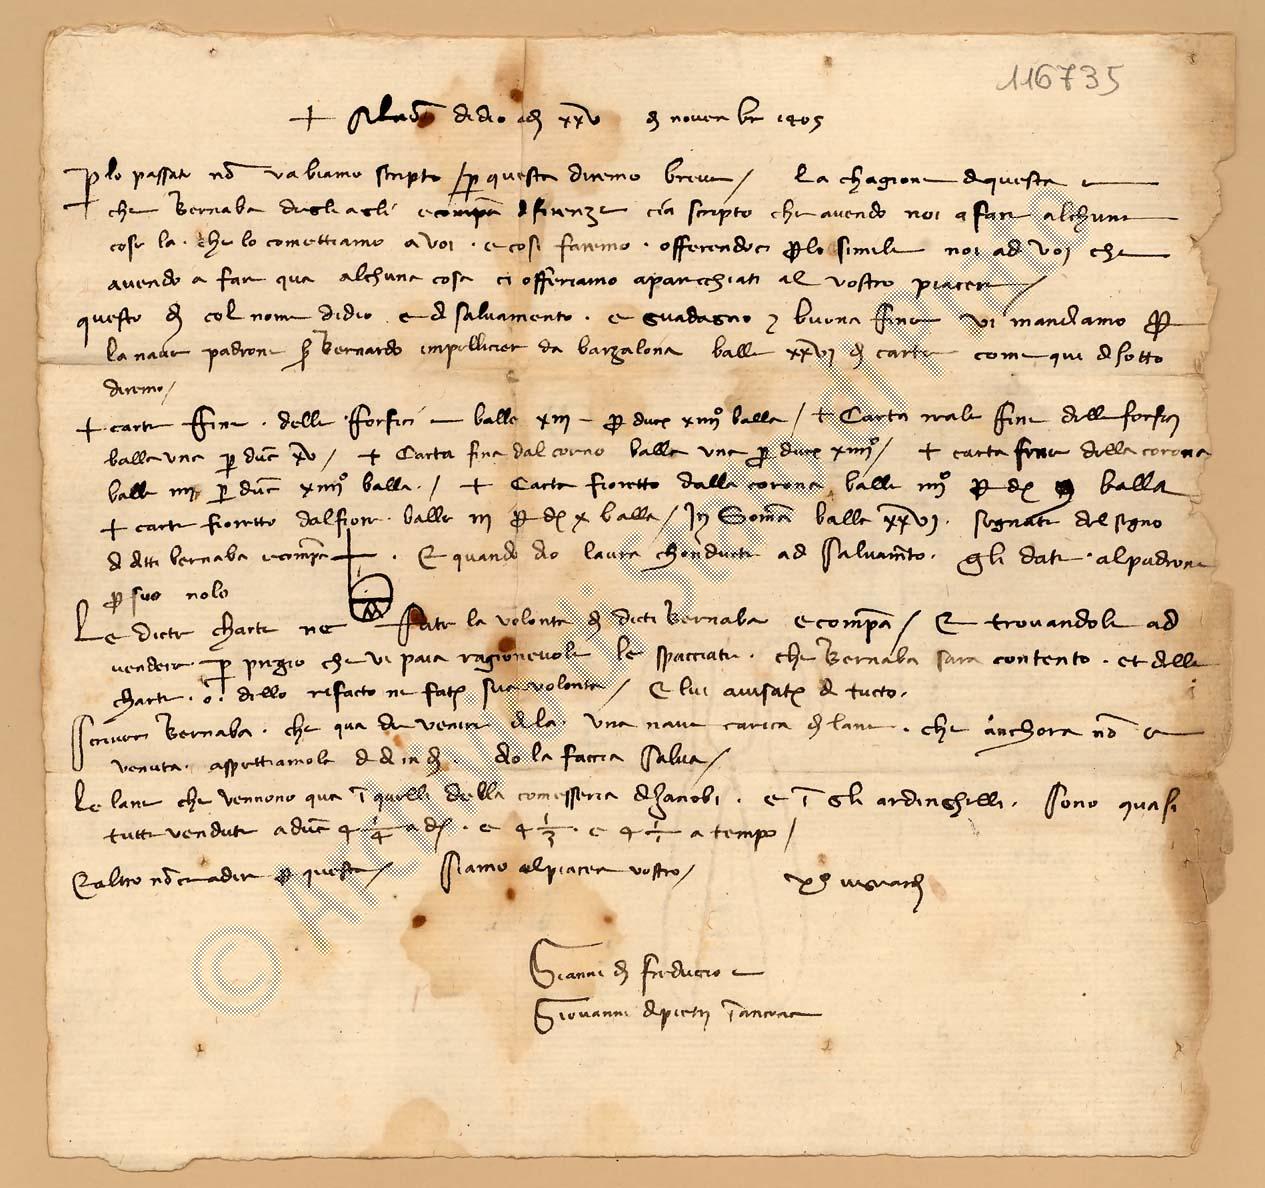 116735
+ Al nō di dio adì xxv di novenbr 1405
P lo passato nō v abiamo scripto / p questa diremo breve / La chagione di questa e
che Bernaba degli agli e compā di firenze cia scripto che avendo noi a fare alchune
cose la · che lo comettiamo a voi · e cosi faremo · offerendoci p lo simile noi ad voi che
avendo a fare qua alchuna cosa ci offeriamo aparecchiati al vostro piacere /
questo dì col nome di dio e di salvamento · e guadagno e buona fine vi mandiamo p
la nave padrone s Bernardo impellicier da barzalona balle xxvi di carte come qui di sotto
diremo /
+ carte fine · delle forfici balle xiii p duc xiiiiº balla / + Carta reale fine delle forfici
balla una p duc xv / + Carta fina dal corno balla una p duc xiiiiº / + carta fine della corona
balle iiii p duc xiiiiº balla · / + Carta fioretto dalla corona balle iiiiº p d balla
+ carte fioretto dal fiore · balle iii p d x balla / In Somā balle xxvi · segnate del segno
di detti bernaba e compā · E quando dio l avra chondutte ad salvamēto · gli date · al padrone
p suo nolo
Le dicte charte ne fate la volonta di dicti Bernaba e compā / E trovandole ad
vendere · p pregio che vi paia ragionevole le spacciate · che Bernaba sara contento · et delle
charte · o · dello refacto ne fate sua volonta / E lui avisate di tucto ·
Scriveci Bernaba · che qua de venire di la · una nave carica di lane · che anchora nō e
venuta · aspettiamola di dì in dì · dio la faccia salva /
Le lane che vennono qua ī quelli della comesseria di Zanobi · e ī gli ardinghelli · sono quasi
tutte vendute a duc 4 1/4 a d · e 4 1/3 · e 4 1/2 a tempo /
E altro nō c e a dire p questa / Siamo al piacere vostro / xpo vi guardi
Gianni di freduccio e
Giovanni di pietro